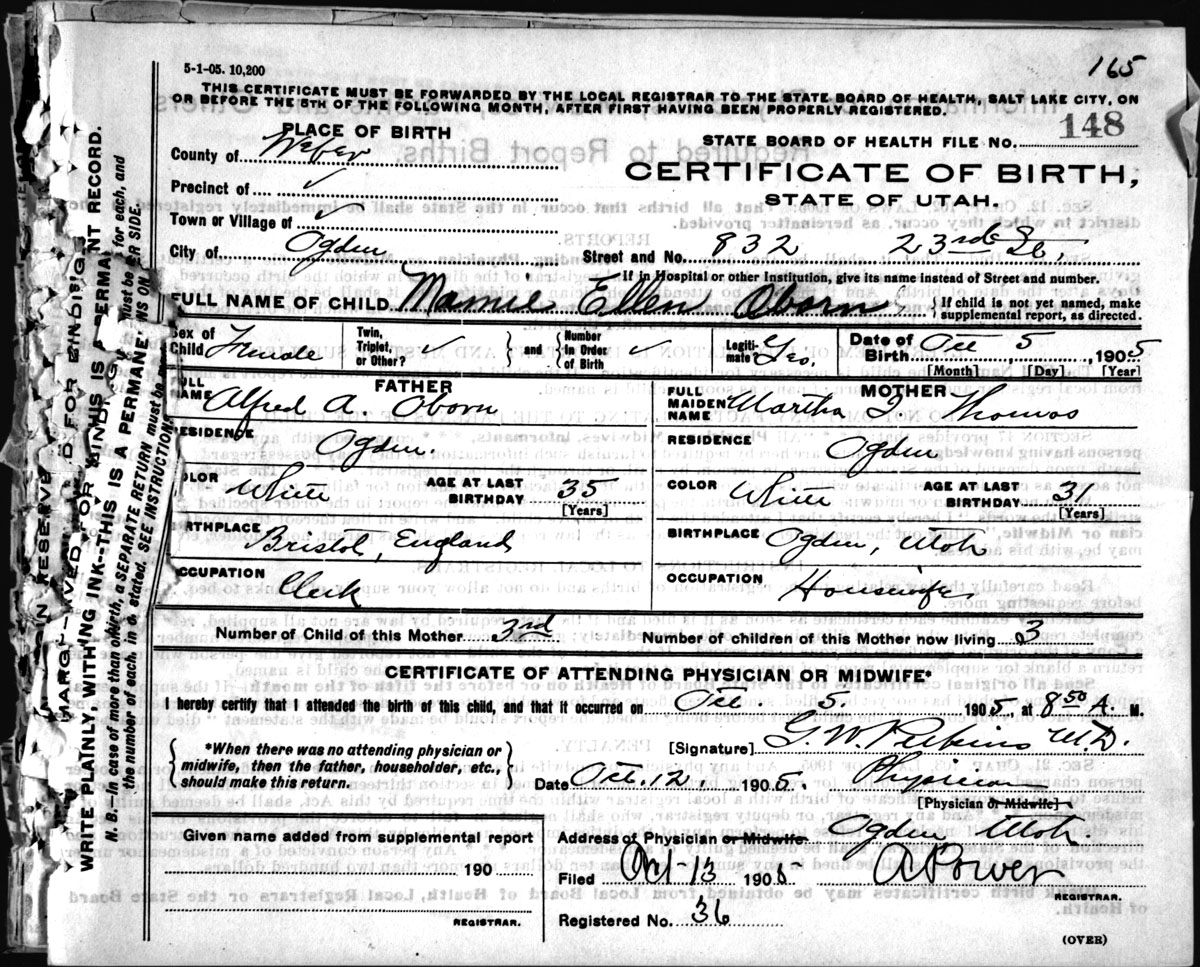 165
5-1-05. 10,200
THIS CERTIFICATE MUST BE FORWARDED BY THE LOCAL REGISTRAR TO THE STATE BOARD OF HEALTH, SALT LAKE CITY, ON
OR BEFORE THE 5TH OF THE FOLLOWING MONTH, AFTER FIRST HAVING BEEN PROPERLY REGISTERED.
PLACE OF BIRTH
STATE BOARD OF HEALTH FILE NO. 148
County of Weber
CERTIFICATE OF BIRTH,
Precinct of ✓
STATE OF UTAH.
Town or Village of ✓
City of Ogden
Street and No. 832 23rd St,
If in Hospital or other Institution, give its name instead of Street and number.
FULL NAME OF CHILD Mamie Ellen Oborn
If child is not yet named, make
supplemental report, as directed.
Sex of
Child Female
Twin,
Triplet,
or Other? ✓
and
Number
in Order
of Birth ✓
Legiti-
mate? Yes
Date of
Birth Oct 5 1905
[Month] [Day] [Year]
FATHER
MOTHER
FULL
NAME Alfred A. Oborn
FULL
MAIDEN
NAME Martha Thomas
RESIDENCE Ogden.
RESIDENCE Ogden
COLOR White
AGE AT LAST
BIRTHDAY 35
[Years]
COLOR White
AGE AT LAST
BIRTHDAY 31
[Years]
BIRTHPLACE Bristol, England
BIRTHPLACE Ogden, Utah
OCCUPATION Clerk
OCCUPATION Housewife
Number of Child of this Mother 3rd
Number of children of this Mother now living 3
CERTIFICATE OF ATTENDING PHYSICIAN OR MIDWIFE*
I hereby certify that I attended the birth of this child, and that it occurred on Oct. 5. 1905 at 8 50 A. M.
*When there was no attending physician or
midwife, then the father, householder, etc.,
should make this return.
[Signature] G. W. Perkins M.D.
Date Oct. 12 1905. Physician
[Physician or Midwife]
Given name added from supplemental report
190
REGISTRAR.
Address of Physician or Midwife Ogden Utah
Filed Oct-13 1905 A Power
REGISTRAR.
Registered No. 36
(OVER)
MARGIN RESERVED FOR BINDING
WRITE PLAINLY WITH INK--THIS IS A PERMANENT RECORD.
N. B.--In case of more than one child at a birth, a SEPARATE RETURN must be made for each, and
the number of each, in order of birth, stated. SEE INSTRUCTIONS ON OTHER SIDE.